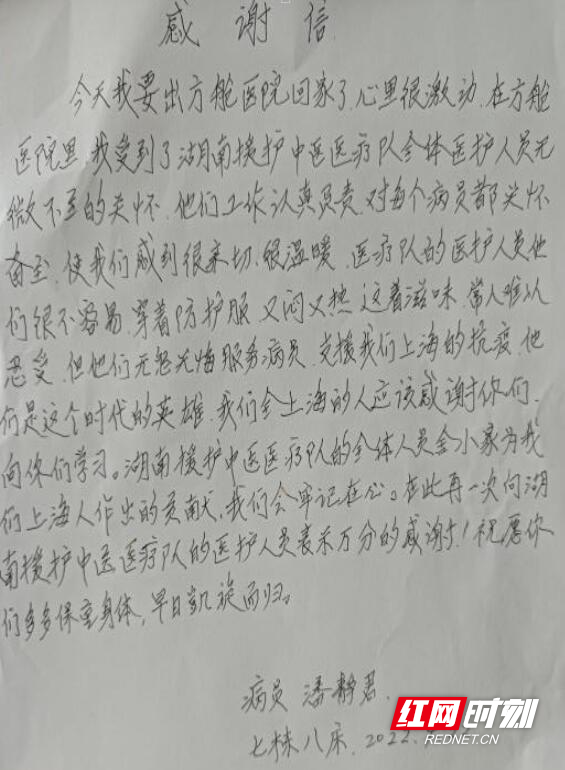 感谢信
今天我要出方舱医院回家了,心里很激动,在方舱
医院里,我受到了湖南援护中医医疗队全体医护人员无
微不至的关怀,他们工作认真负责,对每个病员都关怀
备至,使我们感到很亲切,很温暖,医疗队的医护人员他
们很不容易,穿着防护服,又闷又热,这着滋味,常人难以
忍受,但他们无怨无悔服务病员,支援我们上海的抗疫,他
们是这个时代的英雄,我们全上海的人应该感谢你们,
向你们学习。湖南援护中医医疗队的全体人员舍小家为我
们上海人作出的贡献,我们会牢记在心。在此再一次向湖
南援护中医医疗队的医护人员表示万分的感谢!祝愿你
们多多保重身体,早日凯旋而归。
病员 潘静君
七栋八床, 2022.
红网时刻
REDNET.CN